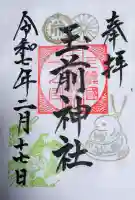 奉拝
玉前神社
令和七年二月十七日